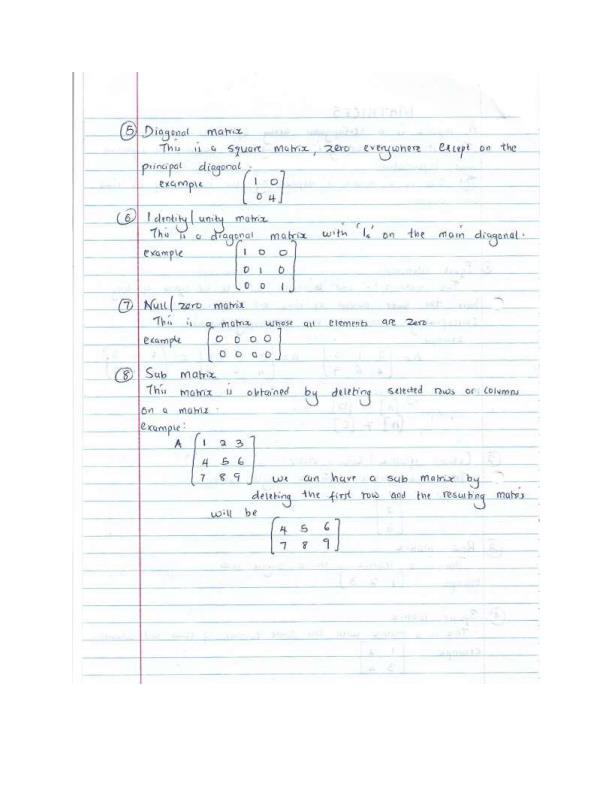 ⑤ Diagonal matrix
This is a square matrix, zero everywhere except on the
principal diagonal.
example [1 0
0 4]
⑥ Identity/unity matrix
This is a diagonal matrix with '1s' on the main diagonal.
example [1 0 0
0 1 0
0 0 1]
⑦ Null/zero matrix
This is a matrix whose all elements are zero.
example [0 0 0 0
0 0 0 0]
⑧ Sub matrix
This matrix is obtained by deleting selected rows or columns
on a matrix.
example:
A [1 2 3
4 5 6
7 8 9] we can have a sub matrix by
deleting the first row and the resulting matrix
will be
[4 5 6
7 8 9]